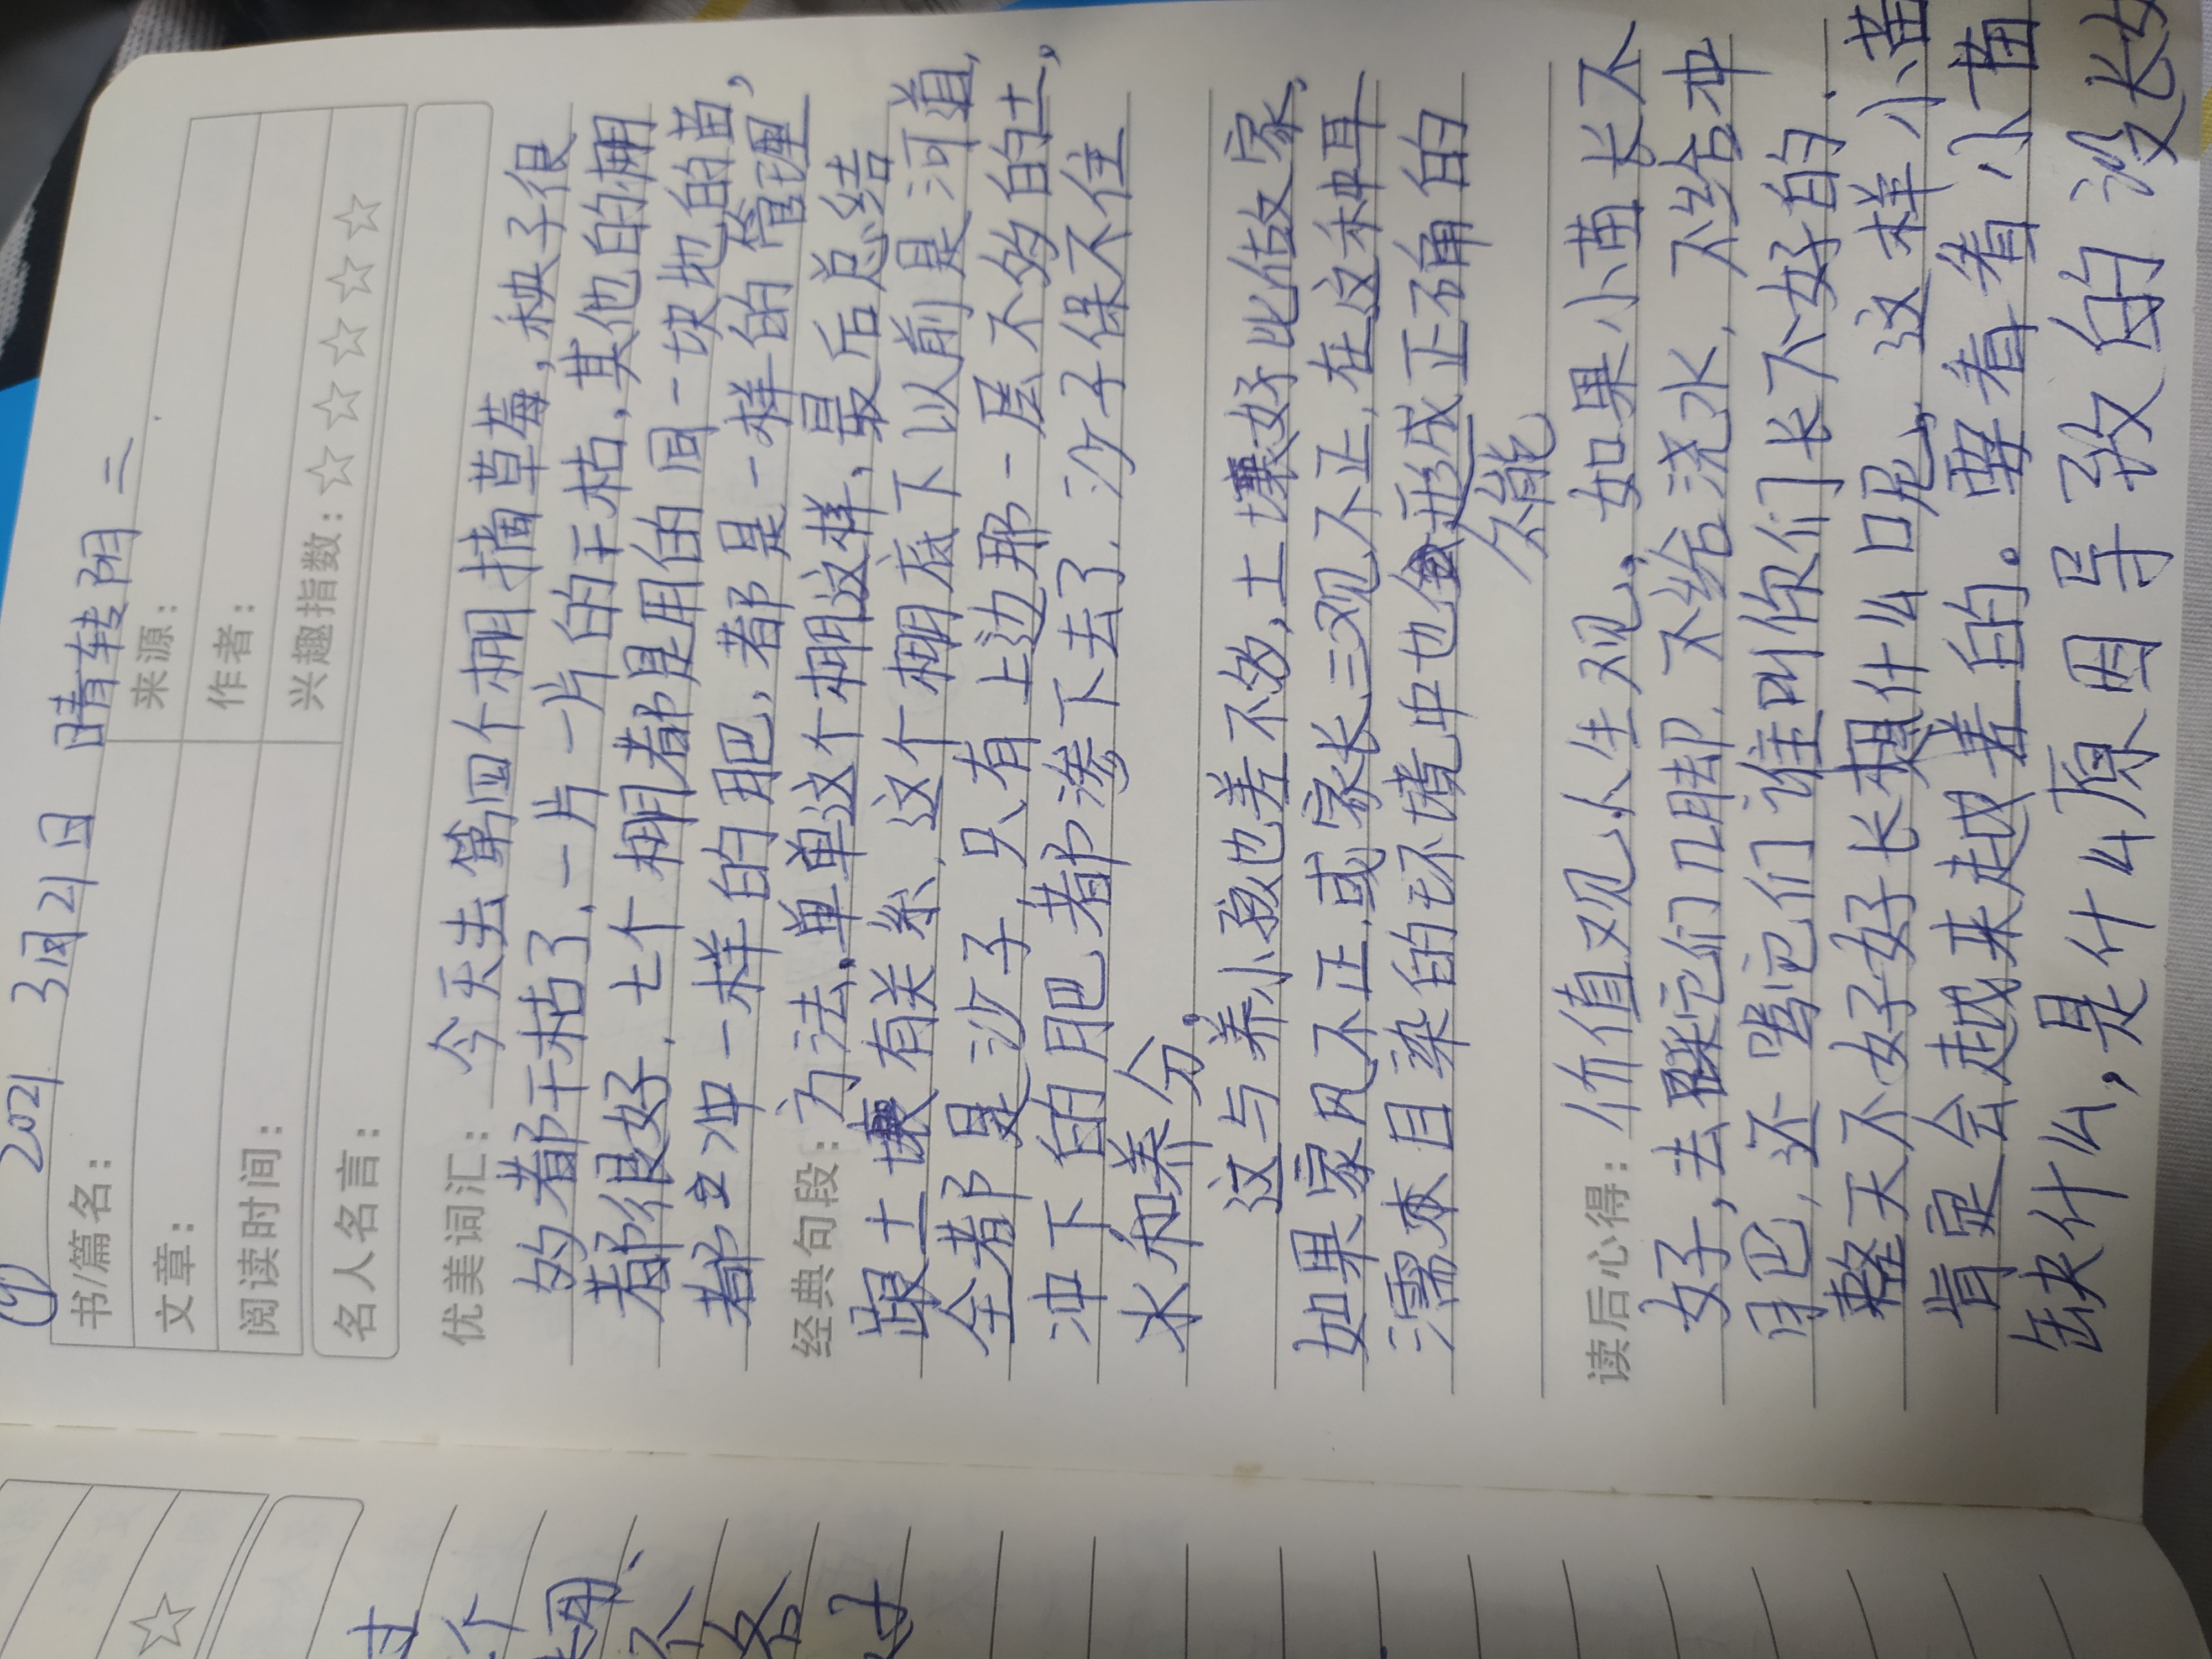 2021 3月21日 晴转阴 二
书/篇名：
来源：
文章：
作者：
阅读时间：
兴趣指数：☆☆☆☆☆
名人名言：
优美词汇：今天去第四个棚摘草莓，秧子很
多都干枯了，一片一片的干枯，其他的棚
都很好，七个棚都是用的同一块地的苗，
都冲一样的肥，都是一样的管理
经典句段：方法，单单这个棚这样，最后总结
跟土壤有关系，这个棚底下以前是河道，
全都是沙子，只有上边那一层不多的土，
冲下的肥都渗下去了，沙子保不住
水和养分。
这与养小孩也差不多，土壤好比估家，
如果家风不正，或家长三观不正，在这种耳
濡木目染的环境中也会形成正确的
不能
读后心得：价值观、人生观，如果小苗长不
好，去踩它们几脚，不给浇水，不给冲
肥，还骂它们谁叫你们长不好的，
整天不好好长想什么呢，这样小苗
肯定会越来越差的。要看看小苗
缺什么，是什么原因导致的没长好
☆